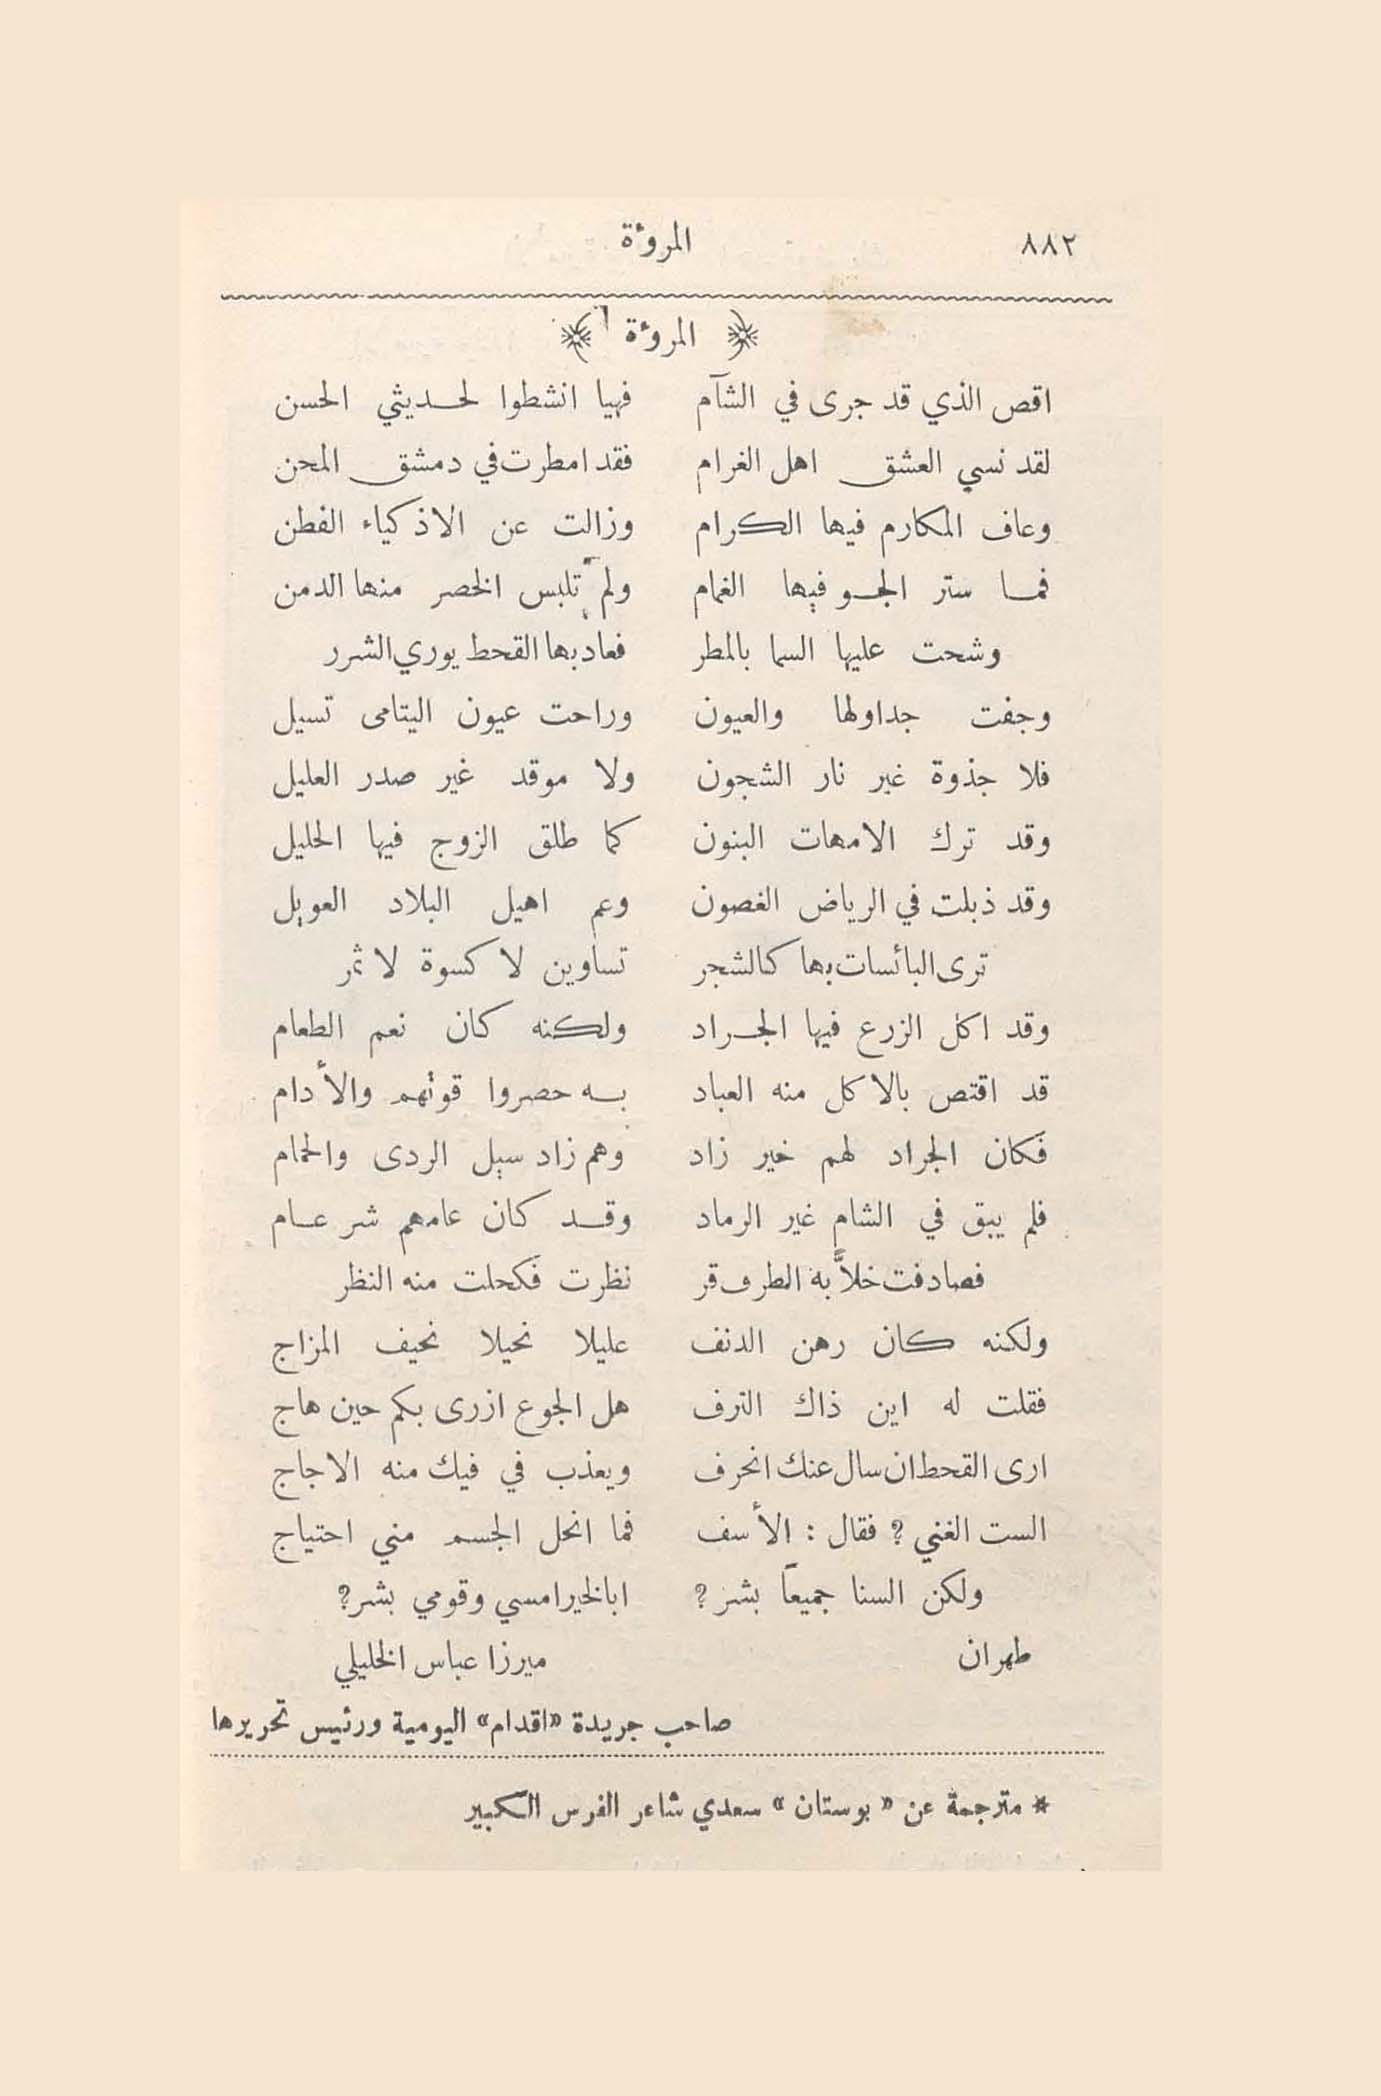 ٨٨٢ المروءة
﴿ المروءة ﴾
اقص الذي قد جرى في الشآم فهيا انشطوا لحديثي الحسن
لقد نسي العشق اهل الغرام فقد امطرت في دمشق المحن
وعاف المكارم فيها الكرام وزالت عن الاذكياء الفطن
فما ستر الجو فيها الغمام ولم تلبس الخضر منها الدمن
وشحت عليها السما بالمطر فعاد بها القحط يوري الشرر
وجفت جداولها والعيون وراحت عيون اليتامى تسيل
فلا جذوة غير نار الشجون ولا موقد غير صدر العليل
وقد ترك الامهات البنون كما طلق الزوج فيها الحليل
وقد ذبلت في الرياض الغصون وعم اهيل البلاد العويل
ترى البائسات بها كالشجر تساوين لا كسوة لا ثمر
وقد اكل الزرع فيها الجراد ولكنه كان نعم الطعام
قد اقتص بالاكل منه العباد به حصروا قوتهم والأدام
فكان الجراد لهم خير زاد وهم زاد سبل الردى والحمام
فلم يبق في الشام غير الرماد وقد كان عامهم شر عام
فصادفت خلاًّ به الطرف قر نظرت فكحلت منه النظر
ولكنه كان رهن الدنف عليلا نحيلا نحيف المزاج
فقلت له اين ذاك الترف هل الجوع ازرى بكم حين هاج
ارى القحط ان سال عنك انحرف ويعذب في فيك منه الاجاج
الست الغني ؟ فقال : الأسف فما انحل الجسم مني احتياج
ولكن السنا جميعاً بشر ؟ ابالخير امسي وقومي بشر ؟
طهران ميرزا عباس الخليلي
صاحب جريدة «اقدام» اليومية ورئيس تحريرها
* مترجمة عن « بوستان » سعدي شاعر الفرس الكبير